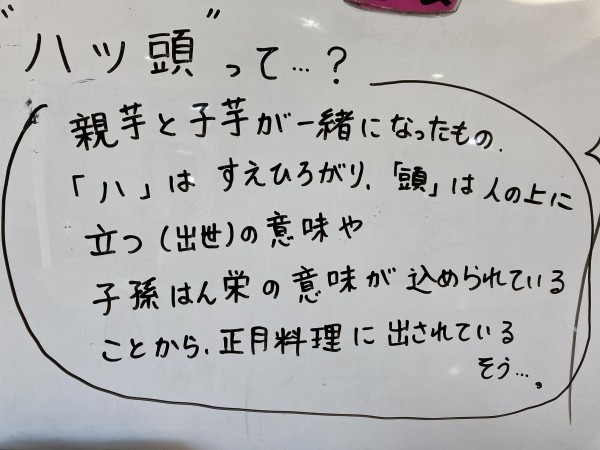 "ハツ頭"って…?
親芋と子芋が一緒になったもの.
「ハ」は すえひろがり、「頭」は人の上に
立つ(出世)の意味や
子孫はん栄の意味が込められている
ことから、正月料理に出されている
そう…。